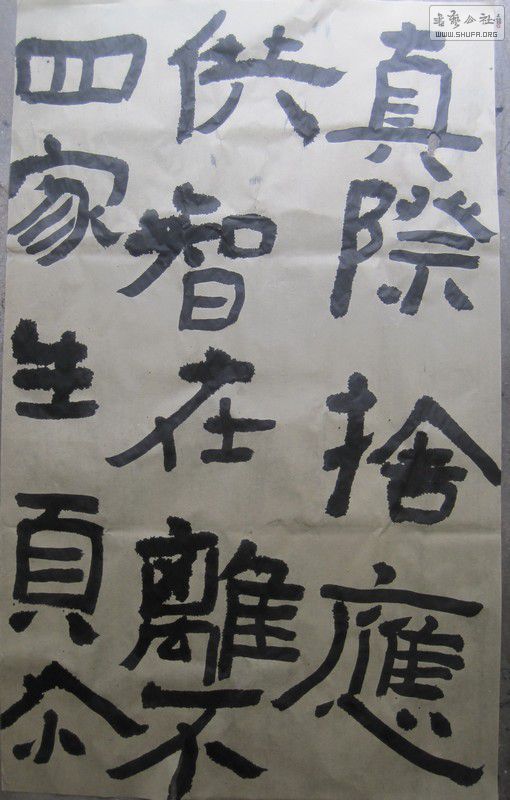 真際捨應
供智在離不
四家生頁尒
WWW.SHUFA.ORG